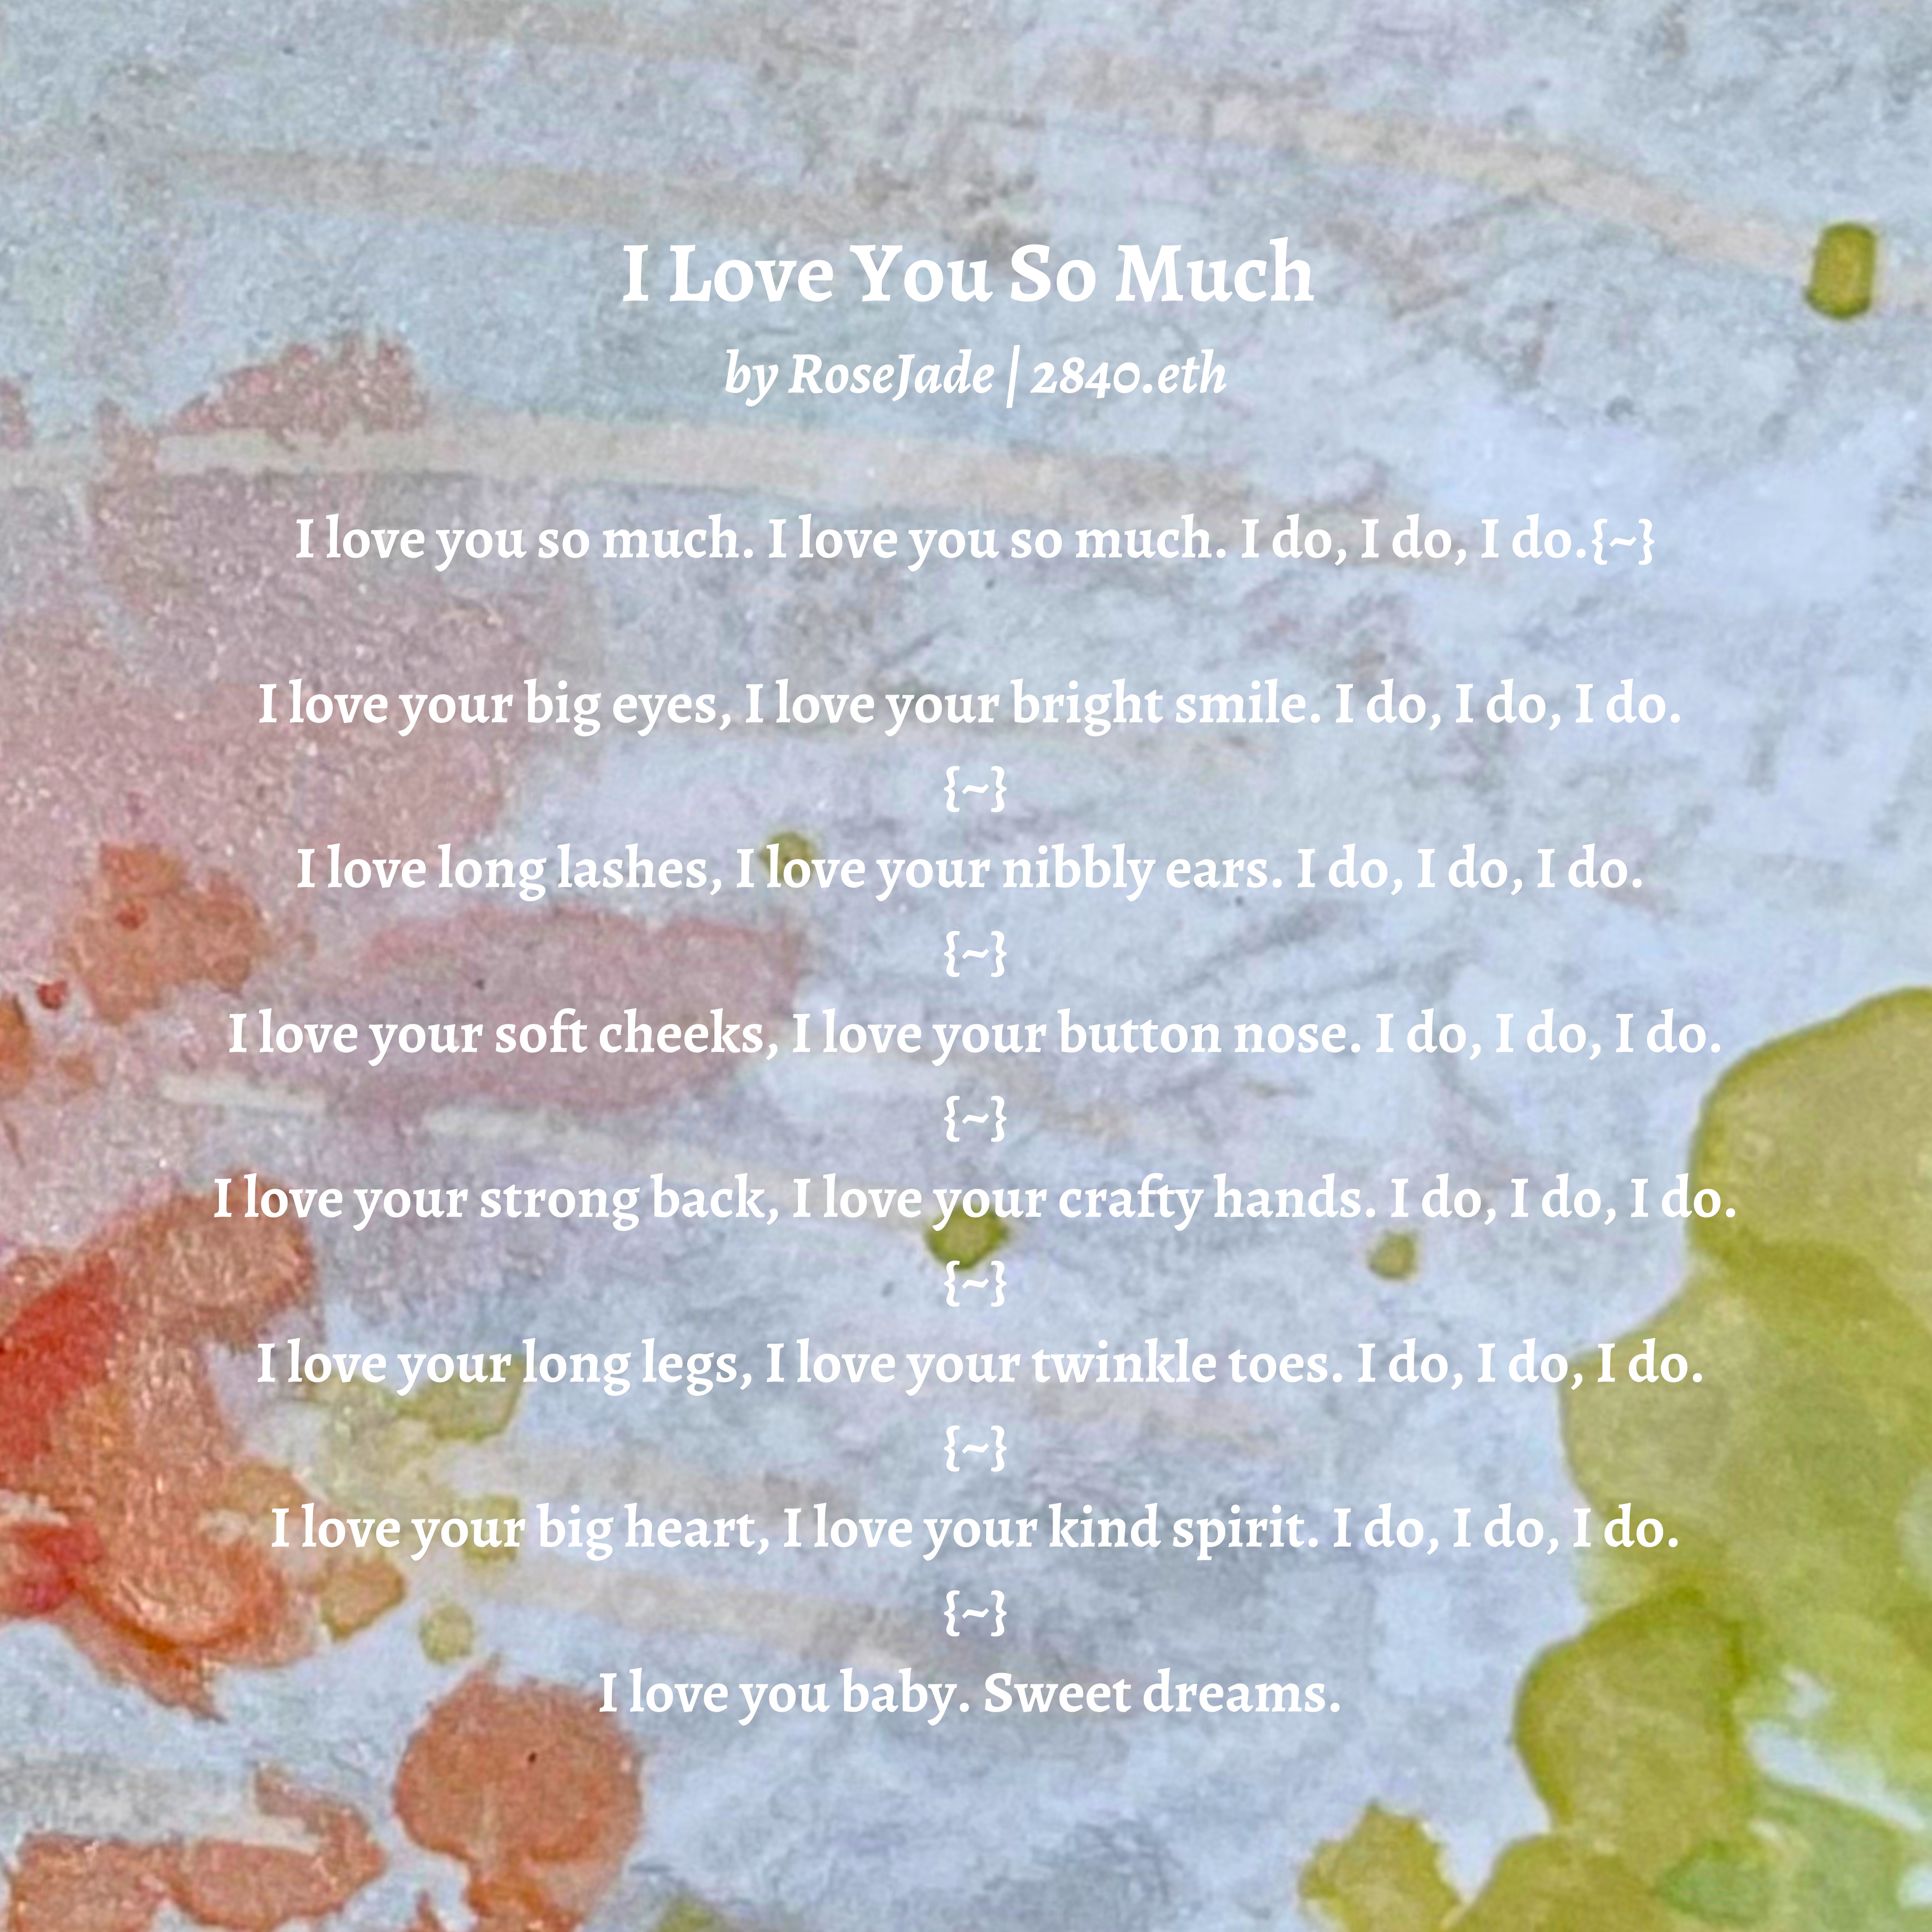 I Love You So Much
by RoseJade | 2840.eth
I love you so much. I love you so much. I do, I do, I do.{~}
I love your big eyes, I love your bright smile. I do, I do, I do.
{~}
I love long lashes, I love your nibbly ears. I do, I do, I do.
{~}
I love your soft cheeks, I love your button nose. I do, I do, I do.
{~}
I love your strong back, I love your crafty hands. I do, I do, I do.
{~}
I love your long legs, I love your twinkle toes. I do, I do, I do.
{~}
I love your big heart, I love your kind spirit. I do, I do, I do.
{~}
I love you baby. Sweet dreams.